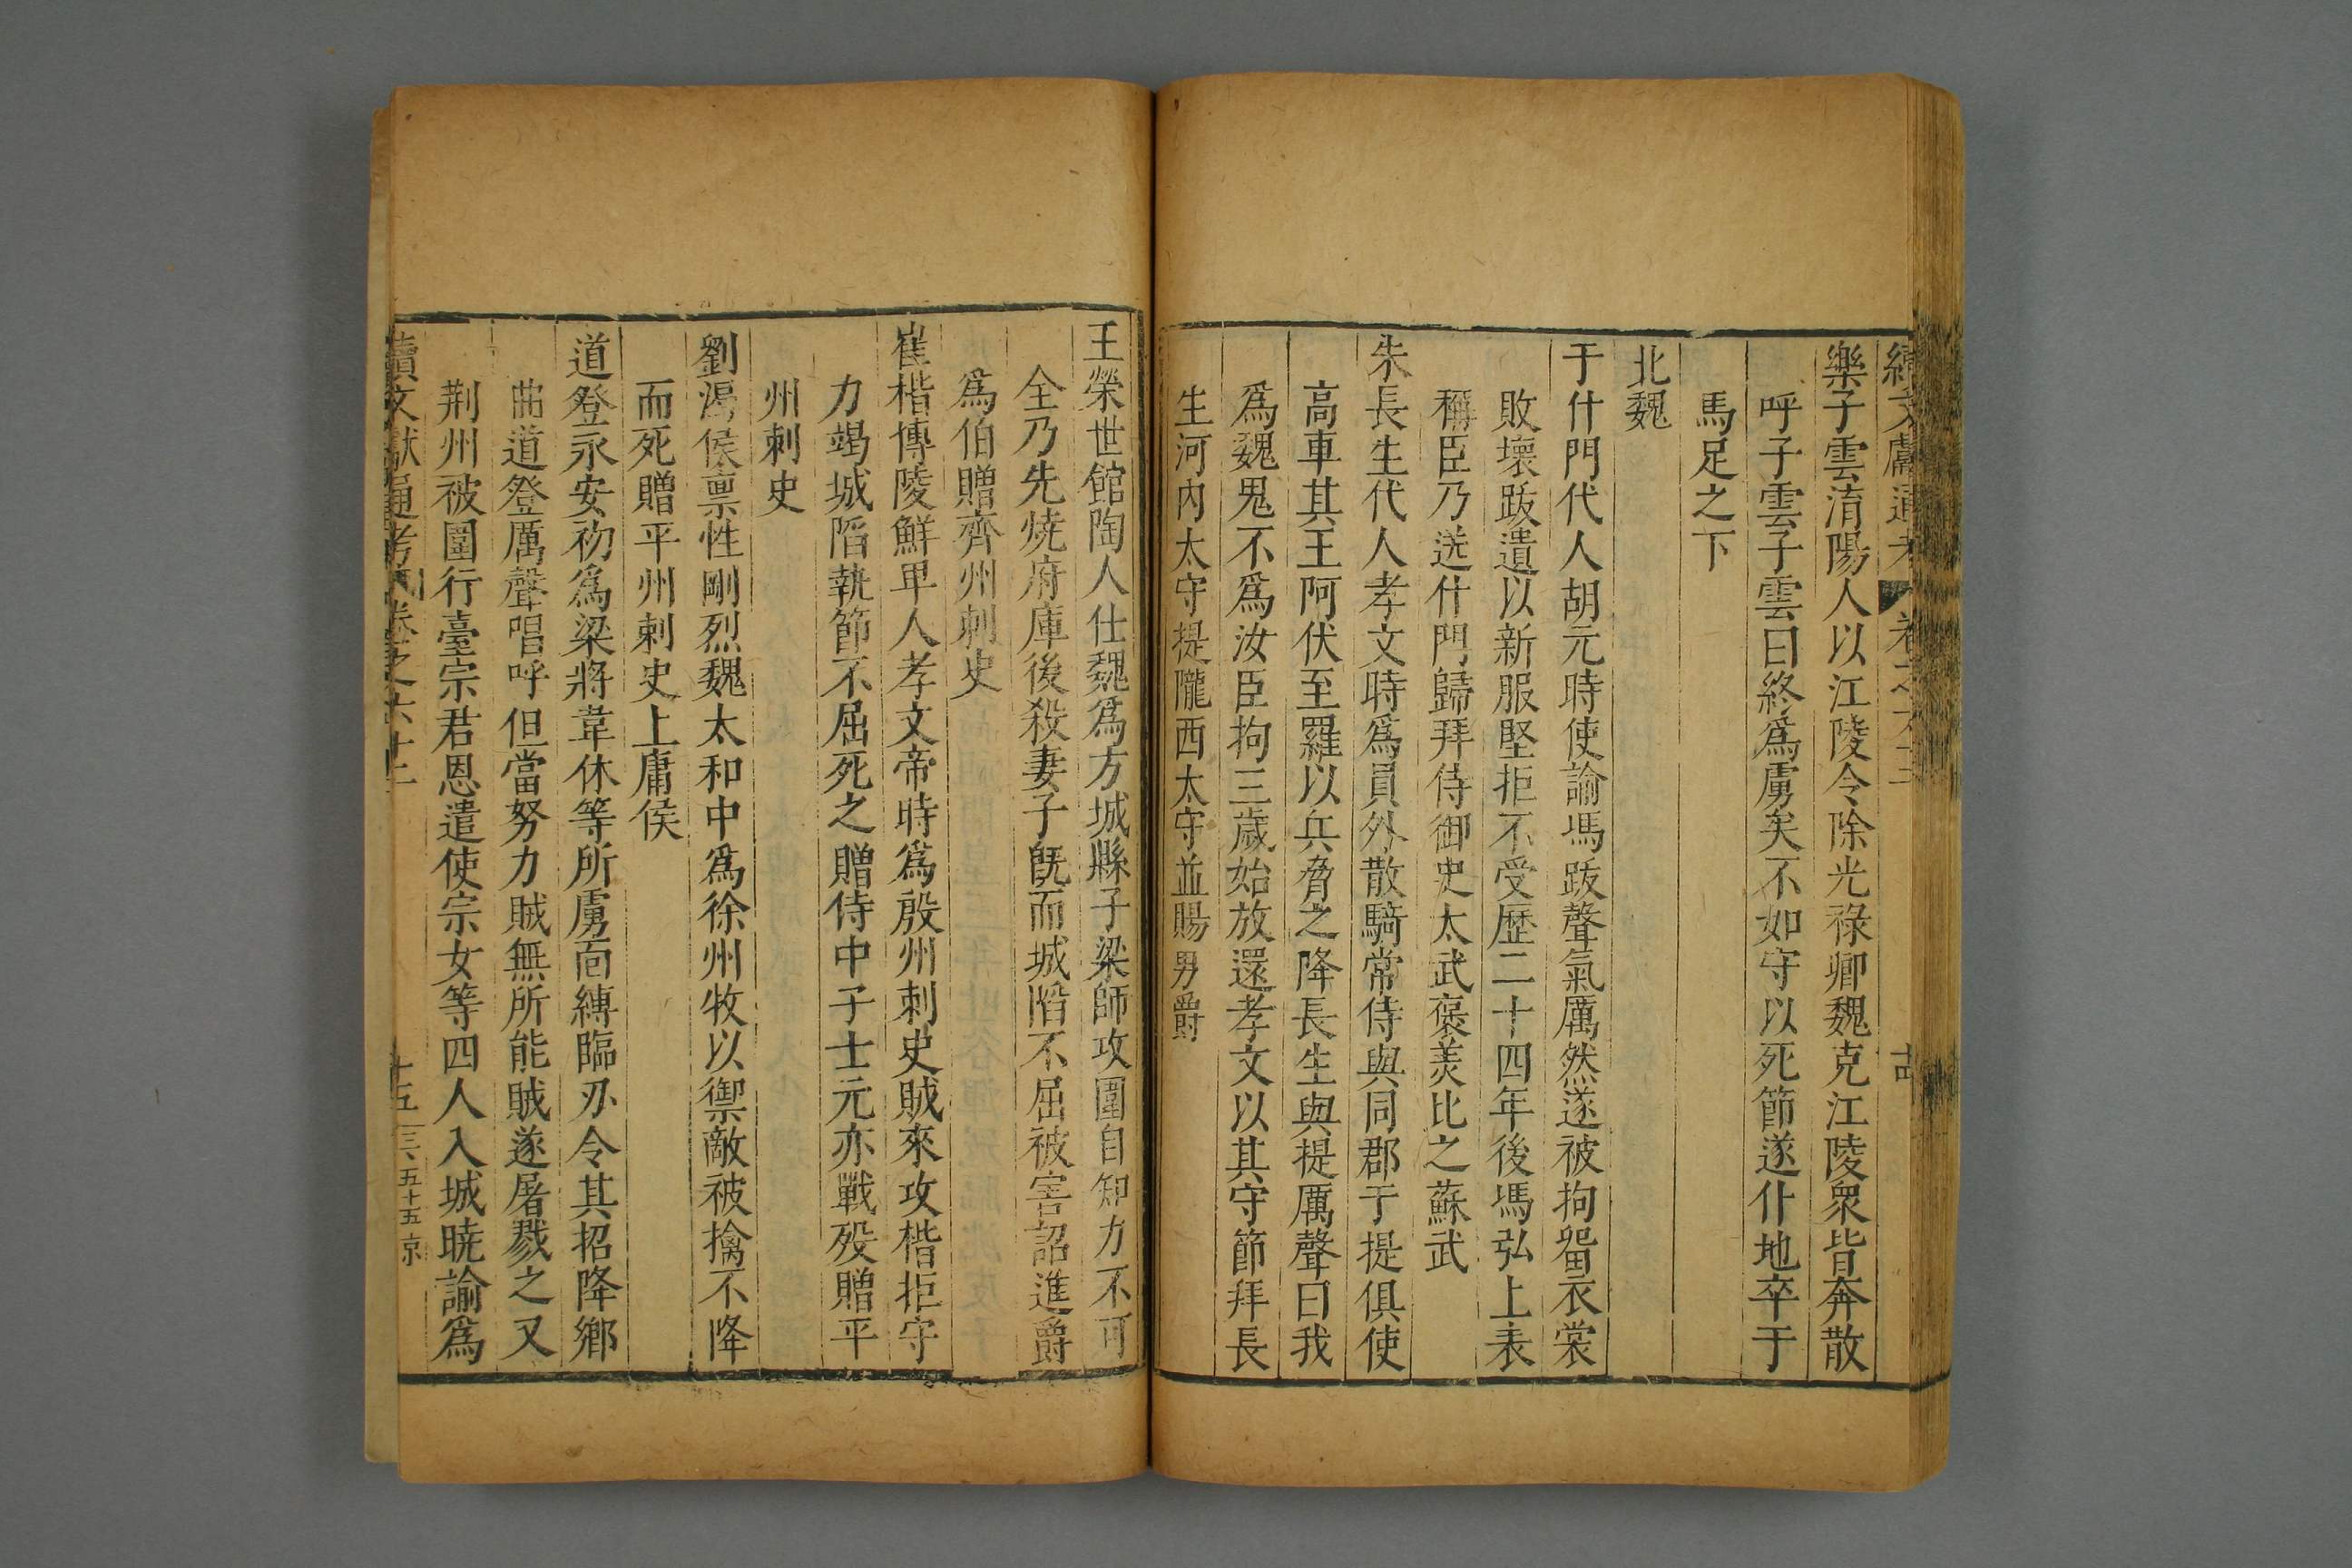 續文獻通考 卷之六十二 十四
樂子雲淯陽人以江陵令除光祿卿魏克江陵衆皆奔散
呼子雲子雲曰終爲虜矣不如守以死節遂仆地卒于
馬足之下
北魏
于什門代人胡元時使諭馮跋聲氣厲然遂被拘畱衣裳
敗壞跋遺以新服堅拒不受歷二十四年後馮弘上表
稱臣乃送什門歸拜侍御史太武褒美比之蘇武
朱長生代人孝文時爲員外散騎常侍與同郡于提俱使
高車其王阿伏至羅以兵脅之降長生與提厲聲曰我
爲魏鬼不爲汝臣拘三歲始放還孝文以其守節拜長
生河內太守提隴西太守並賜男爵
王榮世館陶人仕魏爲方城縣子梁師攻圍自知力不可
全乃先燒府庫後殺妻子旣而城陷不屈被害詔進爵
爲伯贈齊州刺史
崔楷博陵鮮卑人孝文帝時爲殷州刺史賊來攻楷拒守
力竭城陷執節不屈死之贈侍中子士元亦戰歿贈平
州刺史
劉渴侯禀性剛烈魏太和中爲徐州牧以禦敵被擒不降
而死贈平州刺史上庸侯
道登永安初爲梁將韋休等所虜面縛臨刃令其招降鄉
曲道登厲聲唱呼但當努力賊無所能賊遂屠戮之又
荆州被圍行臺宗君恩遣使宗女等四人入城曉諭爲
續文獻通考 卷之六十二 十五 三、五十五 京